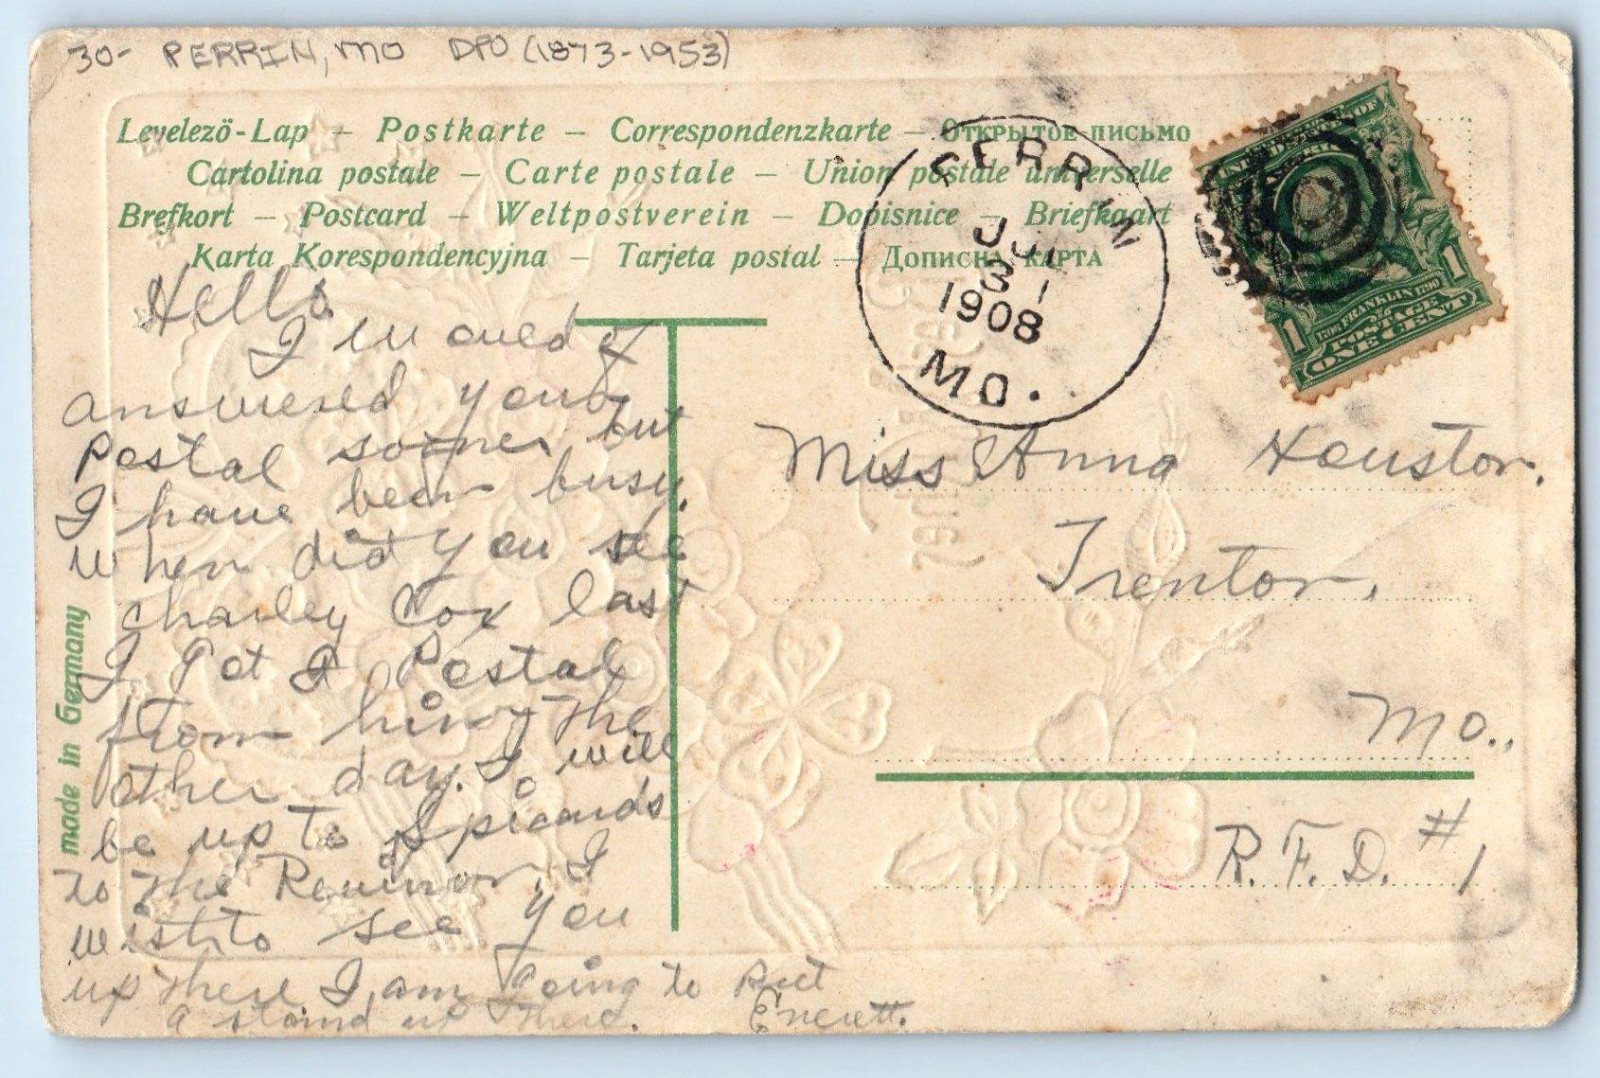 30- PERRIN, MO DPO (1873-1953)
Levelező-Lap – Postkarte – Correspondenzkarte – Открытое письмо
Cartolina postale – Carte postale – Union postale universelle
Brefkort – Postcard – Weltpostverein – Dopisnice – Briefkaart
Karta Korespondencyjna – Tarjeta postal – Дописна карта
PERRIN
JUL
31
1908
MO.
UNITED STATES OF
BENJ. FRANKLIN 1790
1 POSTAGE 1
ONE CENT
Hello.
I
answered your
Postal sooner but
I have been busy.
When did you see
Charley Cox last
I Got A Postal
from him the
other day. I will
be up to Spicards
to the Reunion I
wish to see you
up there I am going to Put
a stand up there. Everett.
Miss Anna Houston.
Trenton.
Mo..
R.F.D. #1
made in Germany